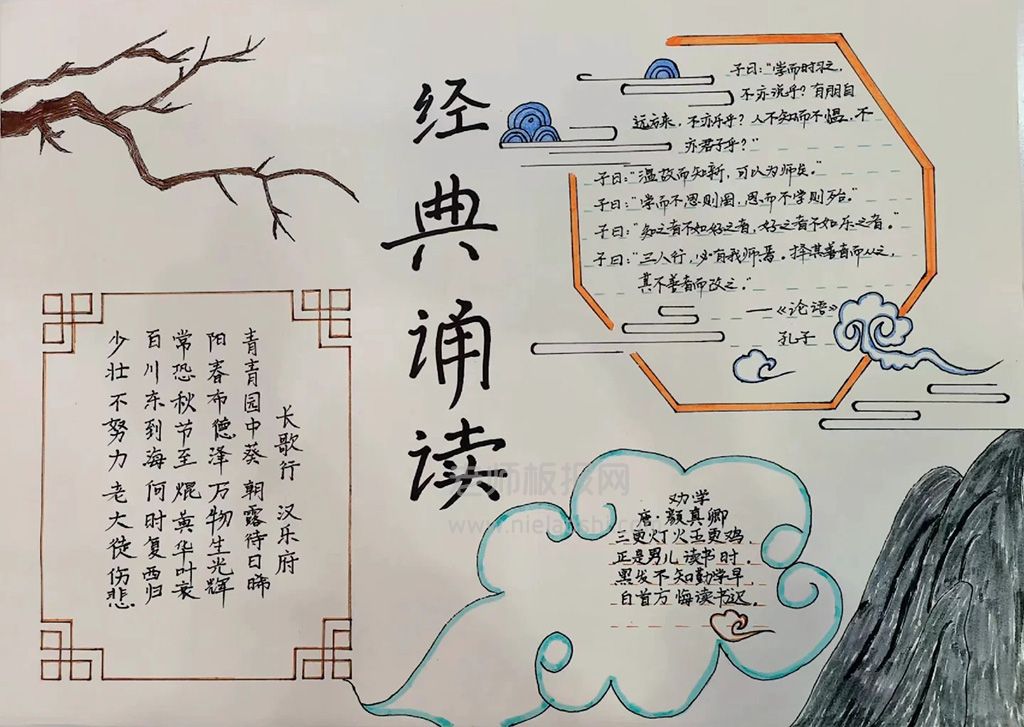 经典诵读
子曰：“学而时习之，
不亦说乎？有朋自
远方来，不亦乐乎？人不知而不愠，不
亦君子乎？”
子曰：“温故而知新，可以为师矣。”
子曰：“学而不思则罔，思而不学则殆。”
子曰：“知之者不如好之者，好之者不如乐之者。”
子曰：“三人行，必有我师焉。择其善者而从之，
其不善者而改之。”
——《论语》
孔子
长歌行 汉乐府
青青园中葵 朝露待日晞
阳春布德泽 万物生光辉
常恐秋节至 焜黄华叶衰
百川东到海 何时复西归
少壮不努力 老大徒伤悲
劝学
唐·颜真卿
三更灯火五更鸡，
正是男儿读书时。
黑发不知勤学早，
白首方悔读书迟。
师板报网